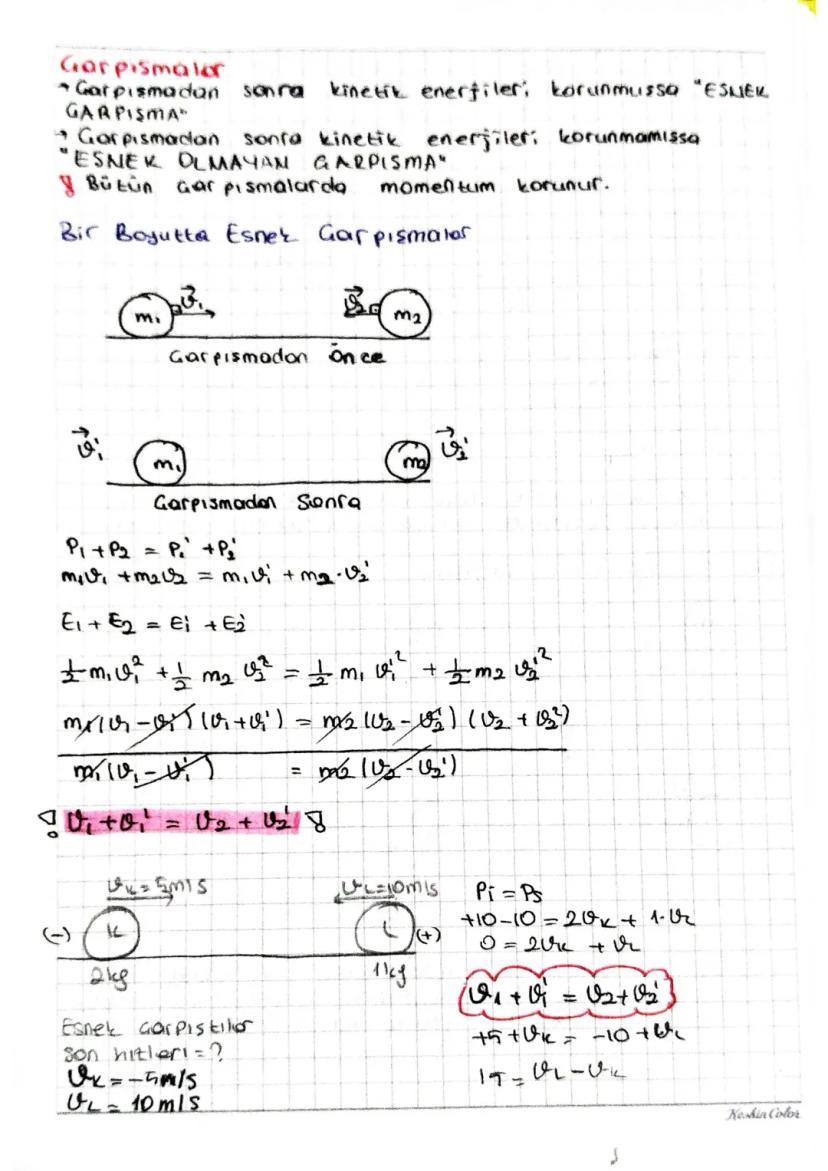 Çarpışmalar
→ Çarpışmadan sonra kinetik enerjileri korunmuşsa "ESNEK
ÇARPIŞMA"
→ Çarpışmadan sonra kinetik enerjileri korunmamışsa
"ESNEK OLMAYAN ÇARPIŞMA"
! Bütün çarpışmalarda momentum korunur.
Bir Boyutta Esnek Çarpışmalar
m₁ v⃗₁ v⃗₂ m₂
Çarpışmadan Önce
v⃗₁' m₁ m₂ v⃗₂'
Çarpışmadan Sonra
P₁ + P₂ = P₁' + P₂'
m₁v₁ + m₂v₂ = m₁v₁' + m₂·v₂'
E₁ + E₂ = E₁' + E₂'
½ m₁v₁² + ½ m₂ v₂² = ½ m₁ v₁'² + ½ m₂ v₂'²
m₁(v₁ - v₁')(v₁ + v₁') = m₂(v₂ - v₂')(v₂ + v₂²)
m₁(v₁ - v₁') = m₂(v₂ - v₂')
! v₁ + v₁' = v₂ + v₂' !
vK = 5m/s vL = 10m/s
(-) K L (+)
2kg 1kg
Esnek çarpıştılar
son hızları = ?
vK = -5m/s
vL = 10m/s
Pi = Ps
+10 - 10 = 2vK + 1·vL
0 = 2vK + vL
v₁ + v₁' = v₂ + v₂'
+5 + vK = -10 + vL
15 = vL - vK
Keskin Color